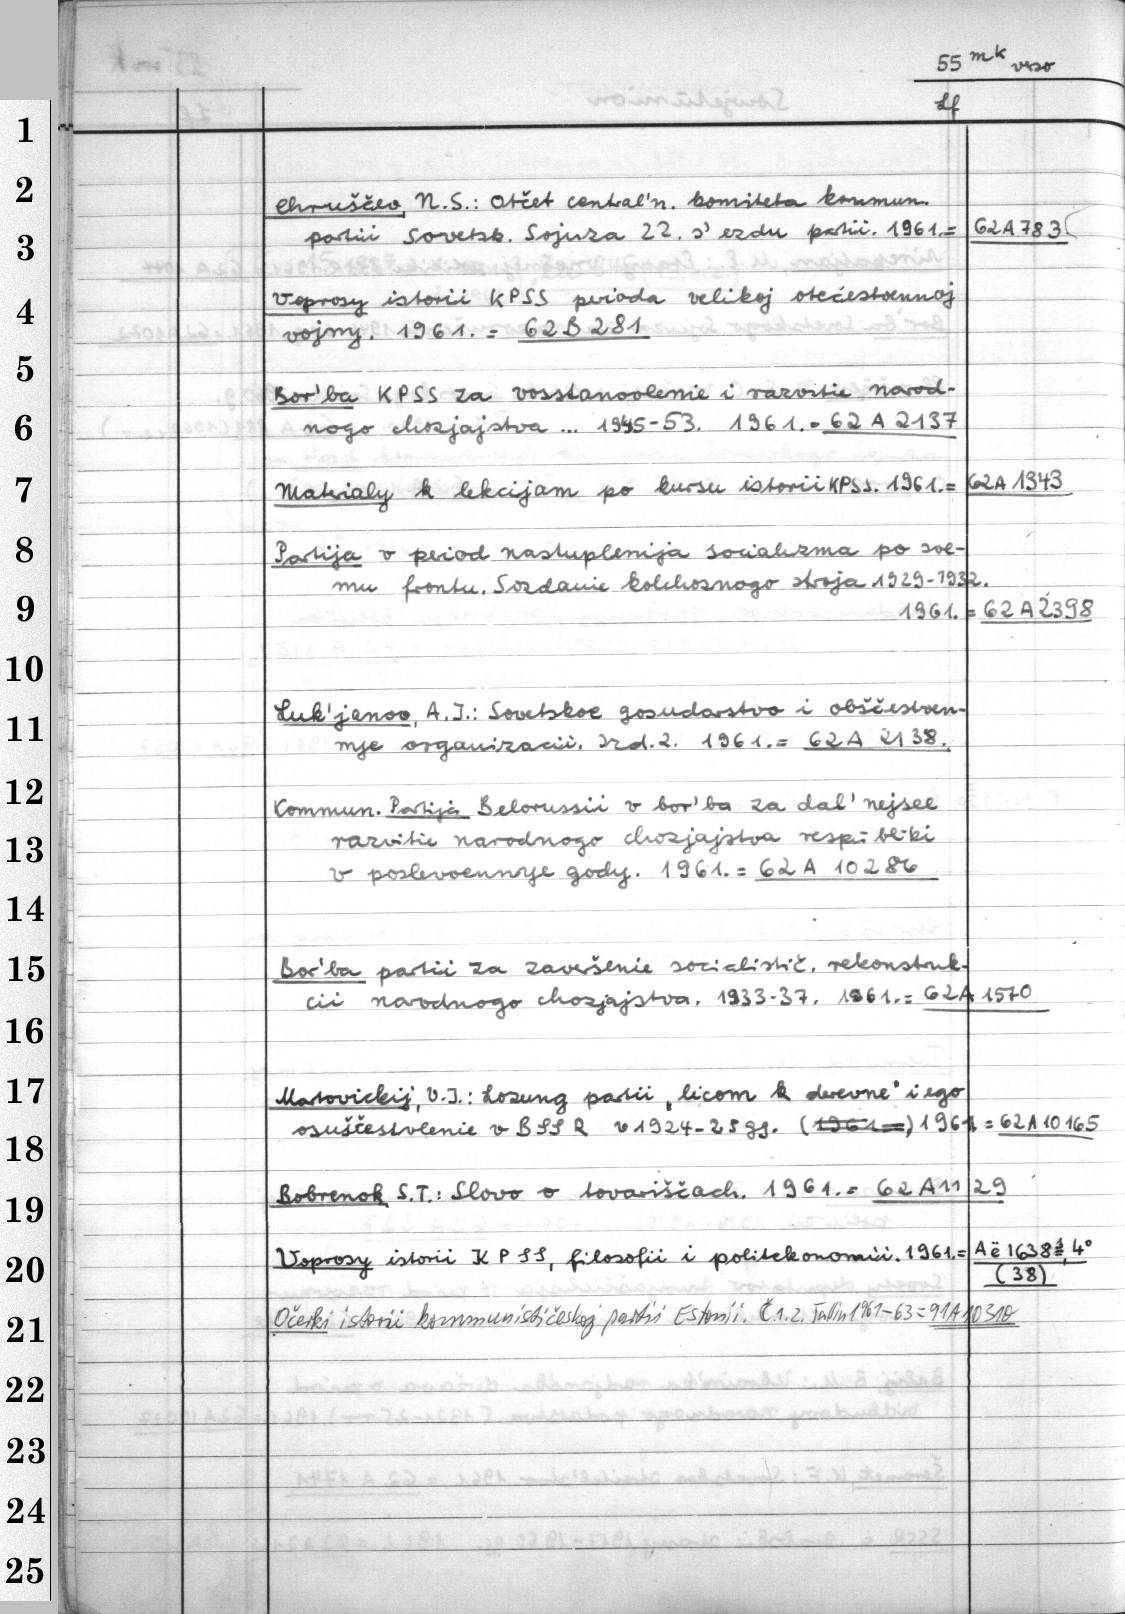 55 mk verso
Lf
1
2
Chruščev, N.S.: Otčet central'n. komiteta kommun.
3
partii Sovetsk. Sojuza 22. s'ezdu partii. 1961.= 62A783
4
Voprosy istorii KPSS perioda velikoj otečestvennoj
vojny. 1961. = 62B281
5
Bor'ba KPSS za vosstanovlenie i razvitie narod-
6
nogo chozjajstva ... 1945-53. 1961.= 62 A 2137
7
Materialy k lekcijam po kursu istorii KPSS. 1961.= 62A 1343
8
Partija v period nastuplenija socializma po vse-
mu frontu. Sozdanie kolchoznogo stroja 1929-1932.
9
1961.= 62A2398
10
11
Luk'janov, A.I.: Sovetskoe gosudarstvo i obščestven-
nye organizacii. Izd.2. 1961.= 62A 2138.
12
Kommun. Partija Belorussii v bor'ba za dal'nejsee
13
razvitie narodnogo chozjajstva respubliki
v poslevoennye gody. 1961.= 62A 10286
14
15
Bor'ba partii za zaveršenie socialistič. rekonstruk-
cii narodnogo chozjajstva. 1933-37. 1961.= 62A 1570
16
17
Martovickij, V.I.: Lozung partii „licom k derevne" i ego
18
osuščestvlenie v BSSR v 1924-25 gg. (1961=) 1961. = 62A10165
19
Bobrenok S.T.: Slovo o tovariščach. 1961.= 62A1129
20
Voprosy istorii KPSS, filosofii i politekonomii. 1961.= Aë 1638 4°
(38)
21
Očerki istorii kommunističeskoj partii Estonii. Č.1.2. Tallin 1961-63=91A10310
22
23
24
25